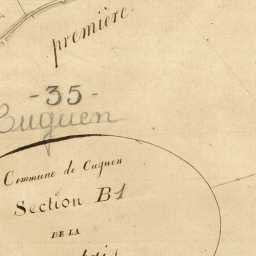 première.
- 35 -
Cuguen
Commune de Cuguen
Section B1
DE LA